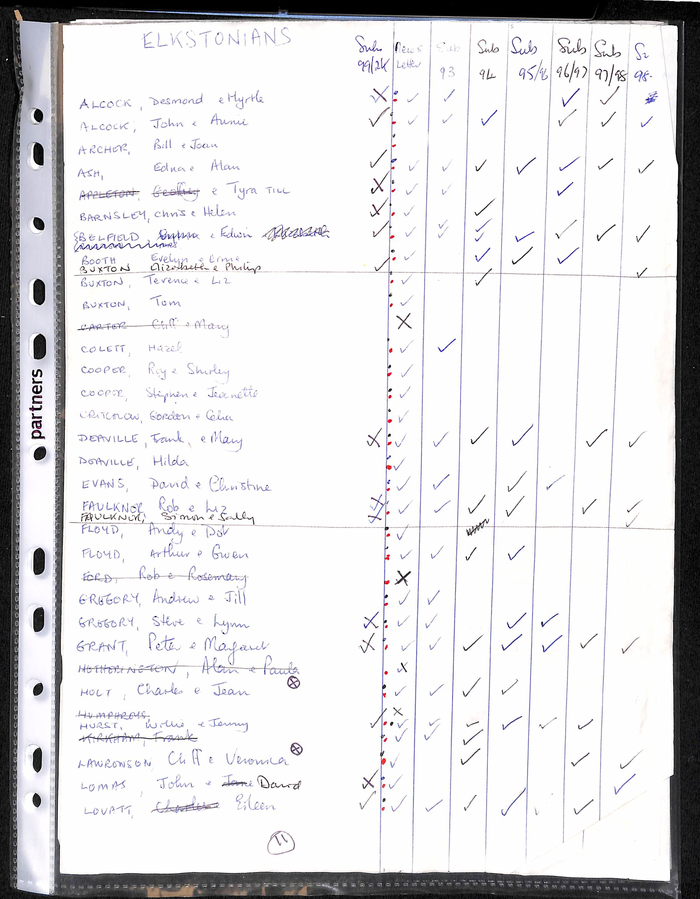 ELKSTONIANS
Sub 99/2K News Letter Sub 93 Sub 94 Sub 95/6 Sub 96/97 Sub 97/98 98-
ALCOCK, Desmond & Myrtle
ALCOCK, John & Annie
ARCHER, Bill & Joan
ASH, Edna & Alan
APPLETON, Geoffrey & Tyra TILL
BARNSLEY, Chris & Helen
BELFIELD, & Edwin
BOOTH Evelyn & Ernie
BUXTON Elizabeth & Philip
BUXTON, Terence & Liz
BUXTON, Tom
CARTER Cliff & Mary
COLETT, Hazel
COOPER, Roy & Shirley
COOPER, Stephen & Jeanette
CRITCHLOW, Gordon & Celia
DEAVILLE, Frank, & Mary
DEAVILLE, Hilda
EVANS, David & Christine
FAULKNER, Rob & Liz
FAULKNER, Simon & Sally
FLOYD, Andy & Dot
FLOYD, Arthur & Gwen
FORD, Rob & Rosemary
GREGORY, Andrew & Jill
GREGORY, Steve & Lynn
GRANT, Peter & Margaret
HOTHERINGTON, Alan & Paula
HOLT, Charles & Jean
HUMPHRIES
HURST, & Jenny
KIRKHAM, Frank
LAWRONSON Cliff & Veronica
LOMAS, John & Jane David
LOVATT, Charles Eileen
11
partners